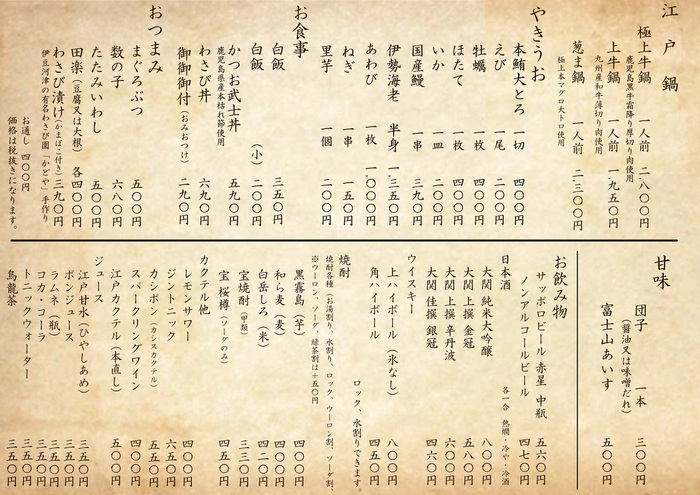 江戸鍋
極上牛鍋 一人前 二、八〇〇円
鹿児島黒牛霜降り厚切り肉使用
上牛鍋 一人前 一、九五〇円
九州産和牛薄切り肉使用
葱ま鍋 一人前 二、三〇〇円
極上本マグロ大トロ使用
やきうお
本鮪大とろ 一切 四〇〇円
えび 一尾 二〇〇円
牡蠣 一枚 四〇〇円
ほたて 一枚 四〇〇円
いか 一皿 二〇〇円
国産鰻 一串 三九〇円
伊勢海老 半身 一、三五〇円
あわび 一枚 一、〇〇〇円
ねぎ 一串 一五〇円
里芋 一個 二〇〇円
お食事
白飯 三〇〇円
白飯 (小) 二〇〇円
かつお武士丼 五九〇円
鹿児島県産本枯れ節使用
わさび丼 六九〇円
御御御付(おみおつけ) 二九〇円
おつまみ
まぐろぶつ 五〇〇円
数の子 六八〇円
たたみいわし 五〇〇円
田楽(豆腐又は大根) 各四〇〇円
わさび漬け(かまぼこ付き) 三九〇円
伊豆河津の有名わさび園「かどや」手作り
お通し 四〇〇円
価格は税抜きになります。
甘味
団子 一本 三〇〇円
(醤油又は味噌だれ)
富士山あいす 五〇〇円
お飲み物
サッポロビール 赤星 中瓶 五六〇円
ノンアルコールビール 四七〇円
日本酒 各一合 熱燗・冷や・冷酒
大関 純米大吟醸 八〇〇円
大関 上撰 金冠 五八〇円
大関 上撰 辛丹波 六〇〇円
大関 佳撰 銀冠 四六〇円
ウイスキー
上ハイボール(氷なし) 八〇〇円
角ハイボール 四五〇円
ロック、水割りできます。
焼酎
焼酎各種(お湯割り、水割り、ロック、ウーロン割、ソーダ割、
※ウーロン、ソーダ、緑茶割は+五〇円
黒霧島(芋) 四〇〇円
和ら麦(麦) 四〇〇円
白岳しろ(米) 四二〇円
宝焼酎(甲類) 三三〇円
宝 桜樽(ソーダのみ) 四五〇円
カクテル他
レモンサワー 四〇〇円
ジントニック 六五〇円
カシボン(カシスカクテル) 五五〇円
スパークリングワイン 四〇〇円
江戸カクテル(本直し) 五〇〇円
ジュース
江戸甘水(ひやしあめ) 三五〇円
ポンジュース 三五〇円
ラムネ(瓶) 三五〇円
コカ・コーラ 三五〇円
トニックウォーター 三五〇円
烏龍茶 三五〇円